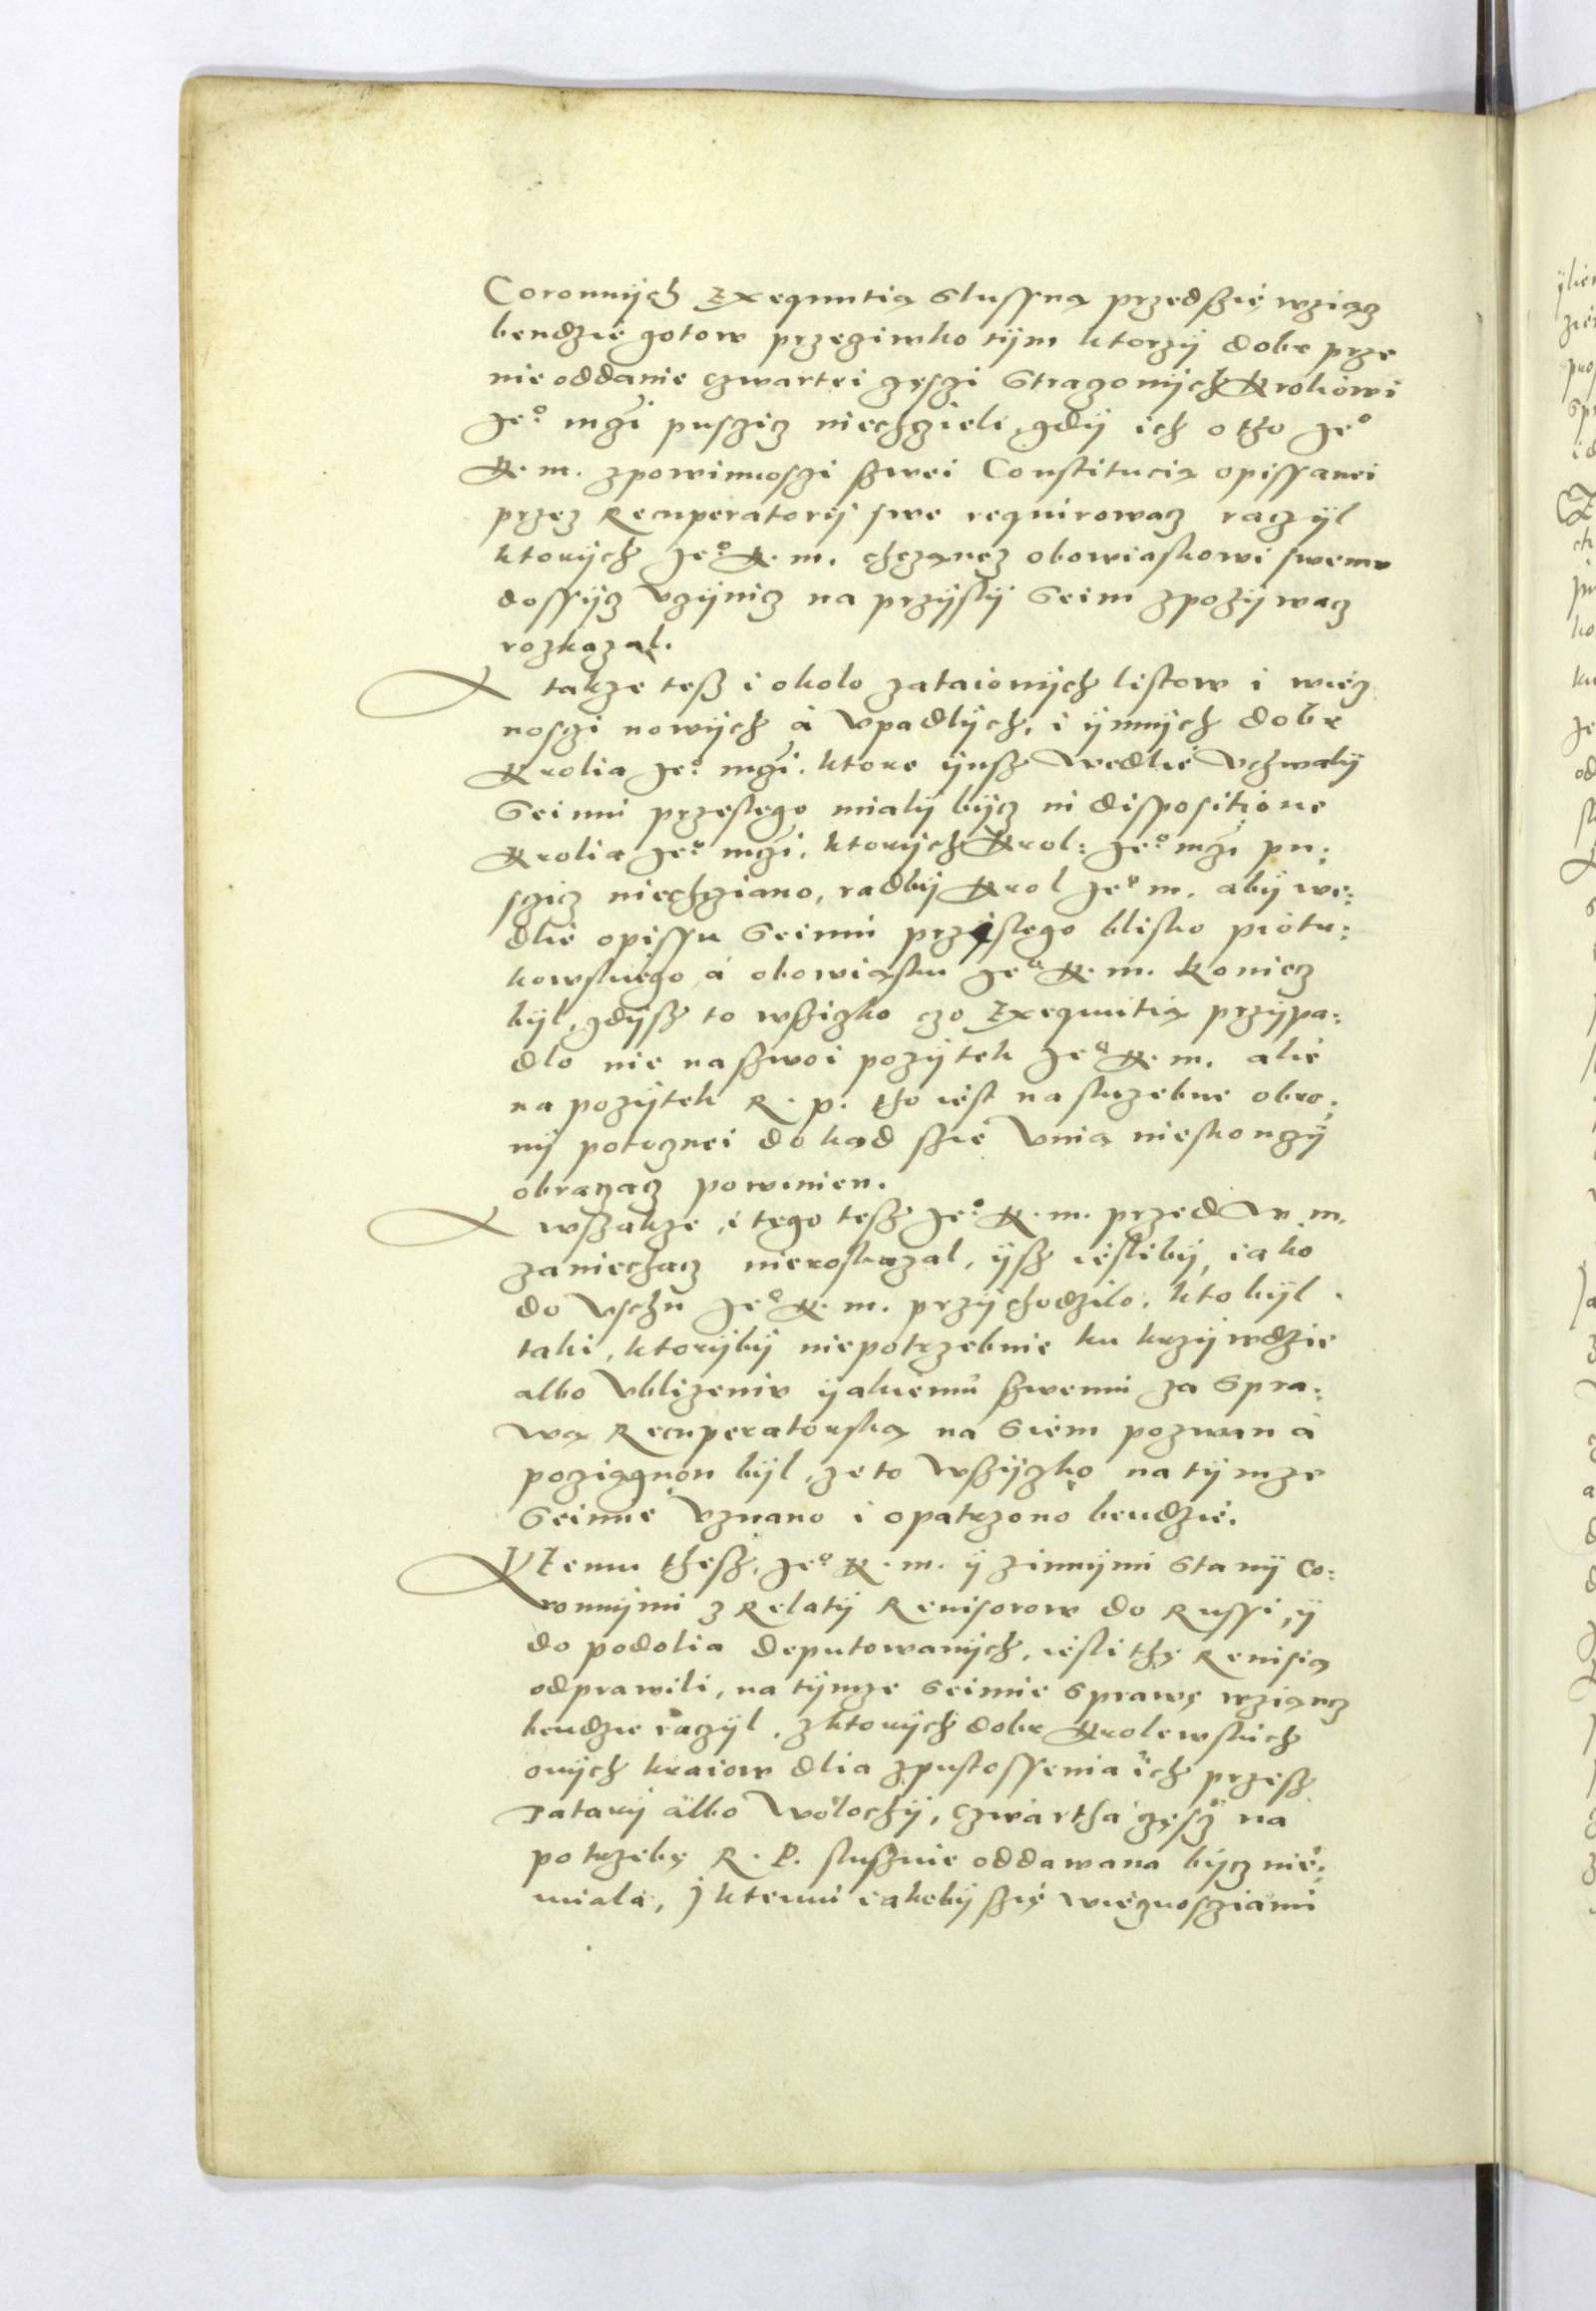 Coronnÿch Exequutią slussną przedszię wziącz
bendzie gotow przeziwko tÿm ktorzÿ dobr prze
nie oddanie czwartei częszi straczonÿch Krolowi
Jeº mczi pusczicz niechczieli, gdÿ ich o tho Jeº
K. m. zpowinnoszi szwei Constitucią opissanei
przez Recuperatorÿ swe requirowacz raczÿl
ktorÿch Jeº K. m. chcząncz obowiaskowi swemu
dossÿcz vczÿnicz na przÿslÿ Seim zpozÿwacz
rozkazal.
A takze tesz i okolo zataionÿch listow i wiecz
noszi nowÿch á vpadlÿch, i ÿnnÿch dobr
Krolia Jeº mczi. ktore ÿusz wedlie vchwalÿ
Seimu przeslego mialÿ bÿcz in dispositione
Krolia Jeº mczi, ktorÿch Krol: Jeº mczi pu:
sczicz niechcziano, radbÿ Krol Jeº m. abÿ we:
dlie opissu Seimu przeslego blisko piotr:
kowskiego á obowiąsku Jeº K. m. koniecz
bÿl, gdÿsz to wszizko czo Exequutią przÿpa:
dlo nie na szwoi pozÿtek Jeº K. m. alie
na pozÿtek R. p. tho iest na sluzebne obro:
nÿ poteznei dokąd szie vnią nieskonczÿ
obraczacz powinien.
A wszakze, i tego tesz Jeº K. m. przed W. m.
zaniechacz nieroskazal, ÿsz iesslibÿ, iako
do vschu Jeº K. m. przÿchodzilo, kto bÿl
taki, ktorÿbÿ niepotrzebnie ku krzÿwdzie
albo vblizeniu ÿakiemu szwemu za spra:
wą Recuperatorską na Siem pozwan á
pocziągnon bÿl, ze to wszÿzko na tÿmze
Seimie vznano i opatrzono bendzie.
Ktemu thesz, Jeº K. m. ÿ zinnÿmi stanÿ co:
ronnÿmi z Relatÿ Reuisorow do Russi, ÿ
do podolia deputowanÿch, iesli thę Reuisią
odprawili, na tÿmze Seimie sprawę wziąncz
bendzie raczÿl, z ktorÿch dobr Krolewskich
onÿch kraiow dlia zpustossenia ich przesz
Tatarÿ albo Wolochÿ, czwartha częsz na
potrzebę R. P. slusznie oddawana bÿcz nie:
miala, J ktemu iakobÿ szię wiecznosziami